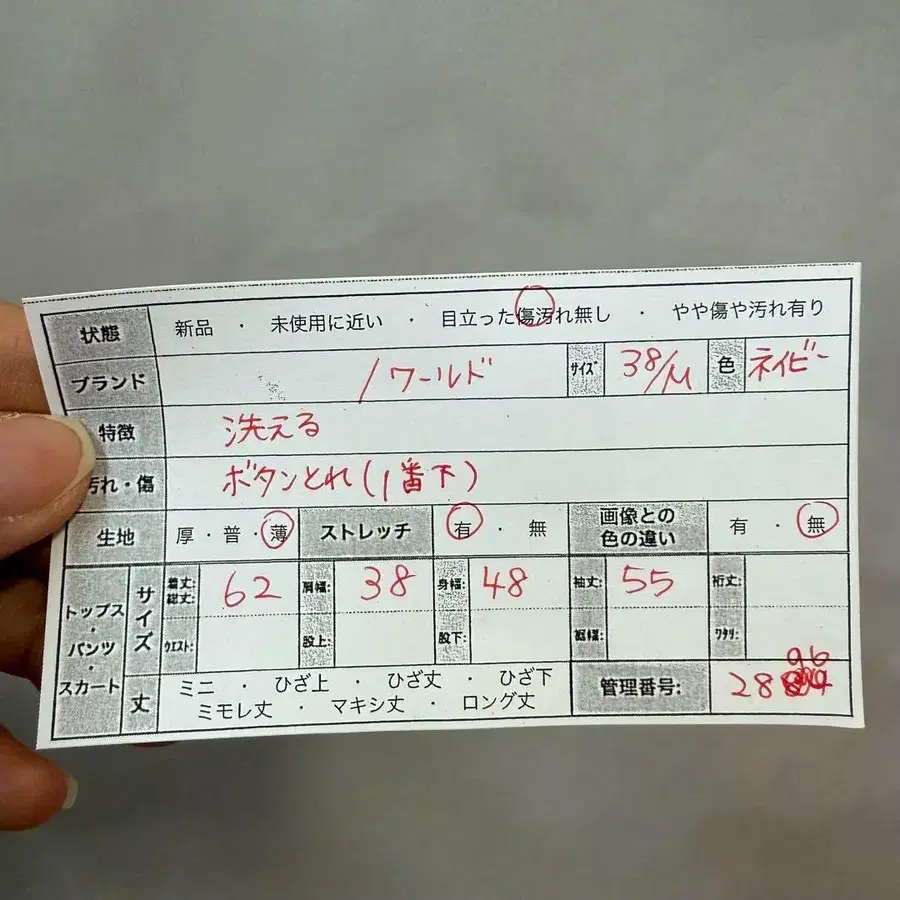 状態 新品 ・ 未使用に近い ・ 目立った傷汚れ無し ・ やや傷や汚れ有り
ブランド /ワールド サイズ 38/M 色 ネイビー
特徴 洗える
汚れ・傷 ボタンとれ(1番下)
生地 厚・普・薄 ストレッチ 有・無 画像との色の違い 有・無
トップス・パンツ・スカート サイズ 着丈:総丈: 62 肩幅: 38 身幅: 48 袖丈: 55 裄丈:
ウエスト: 股上: 股下: 裾幅: ワタリ:
丈 ミニ ・ ひざ上 ・ ひざ丈 ・ ひざ下
ミモレ丈 ・ マキシ丈 ・ ロング丈
管理番号: 2896